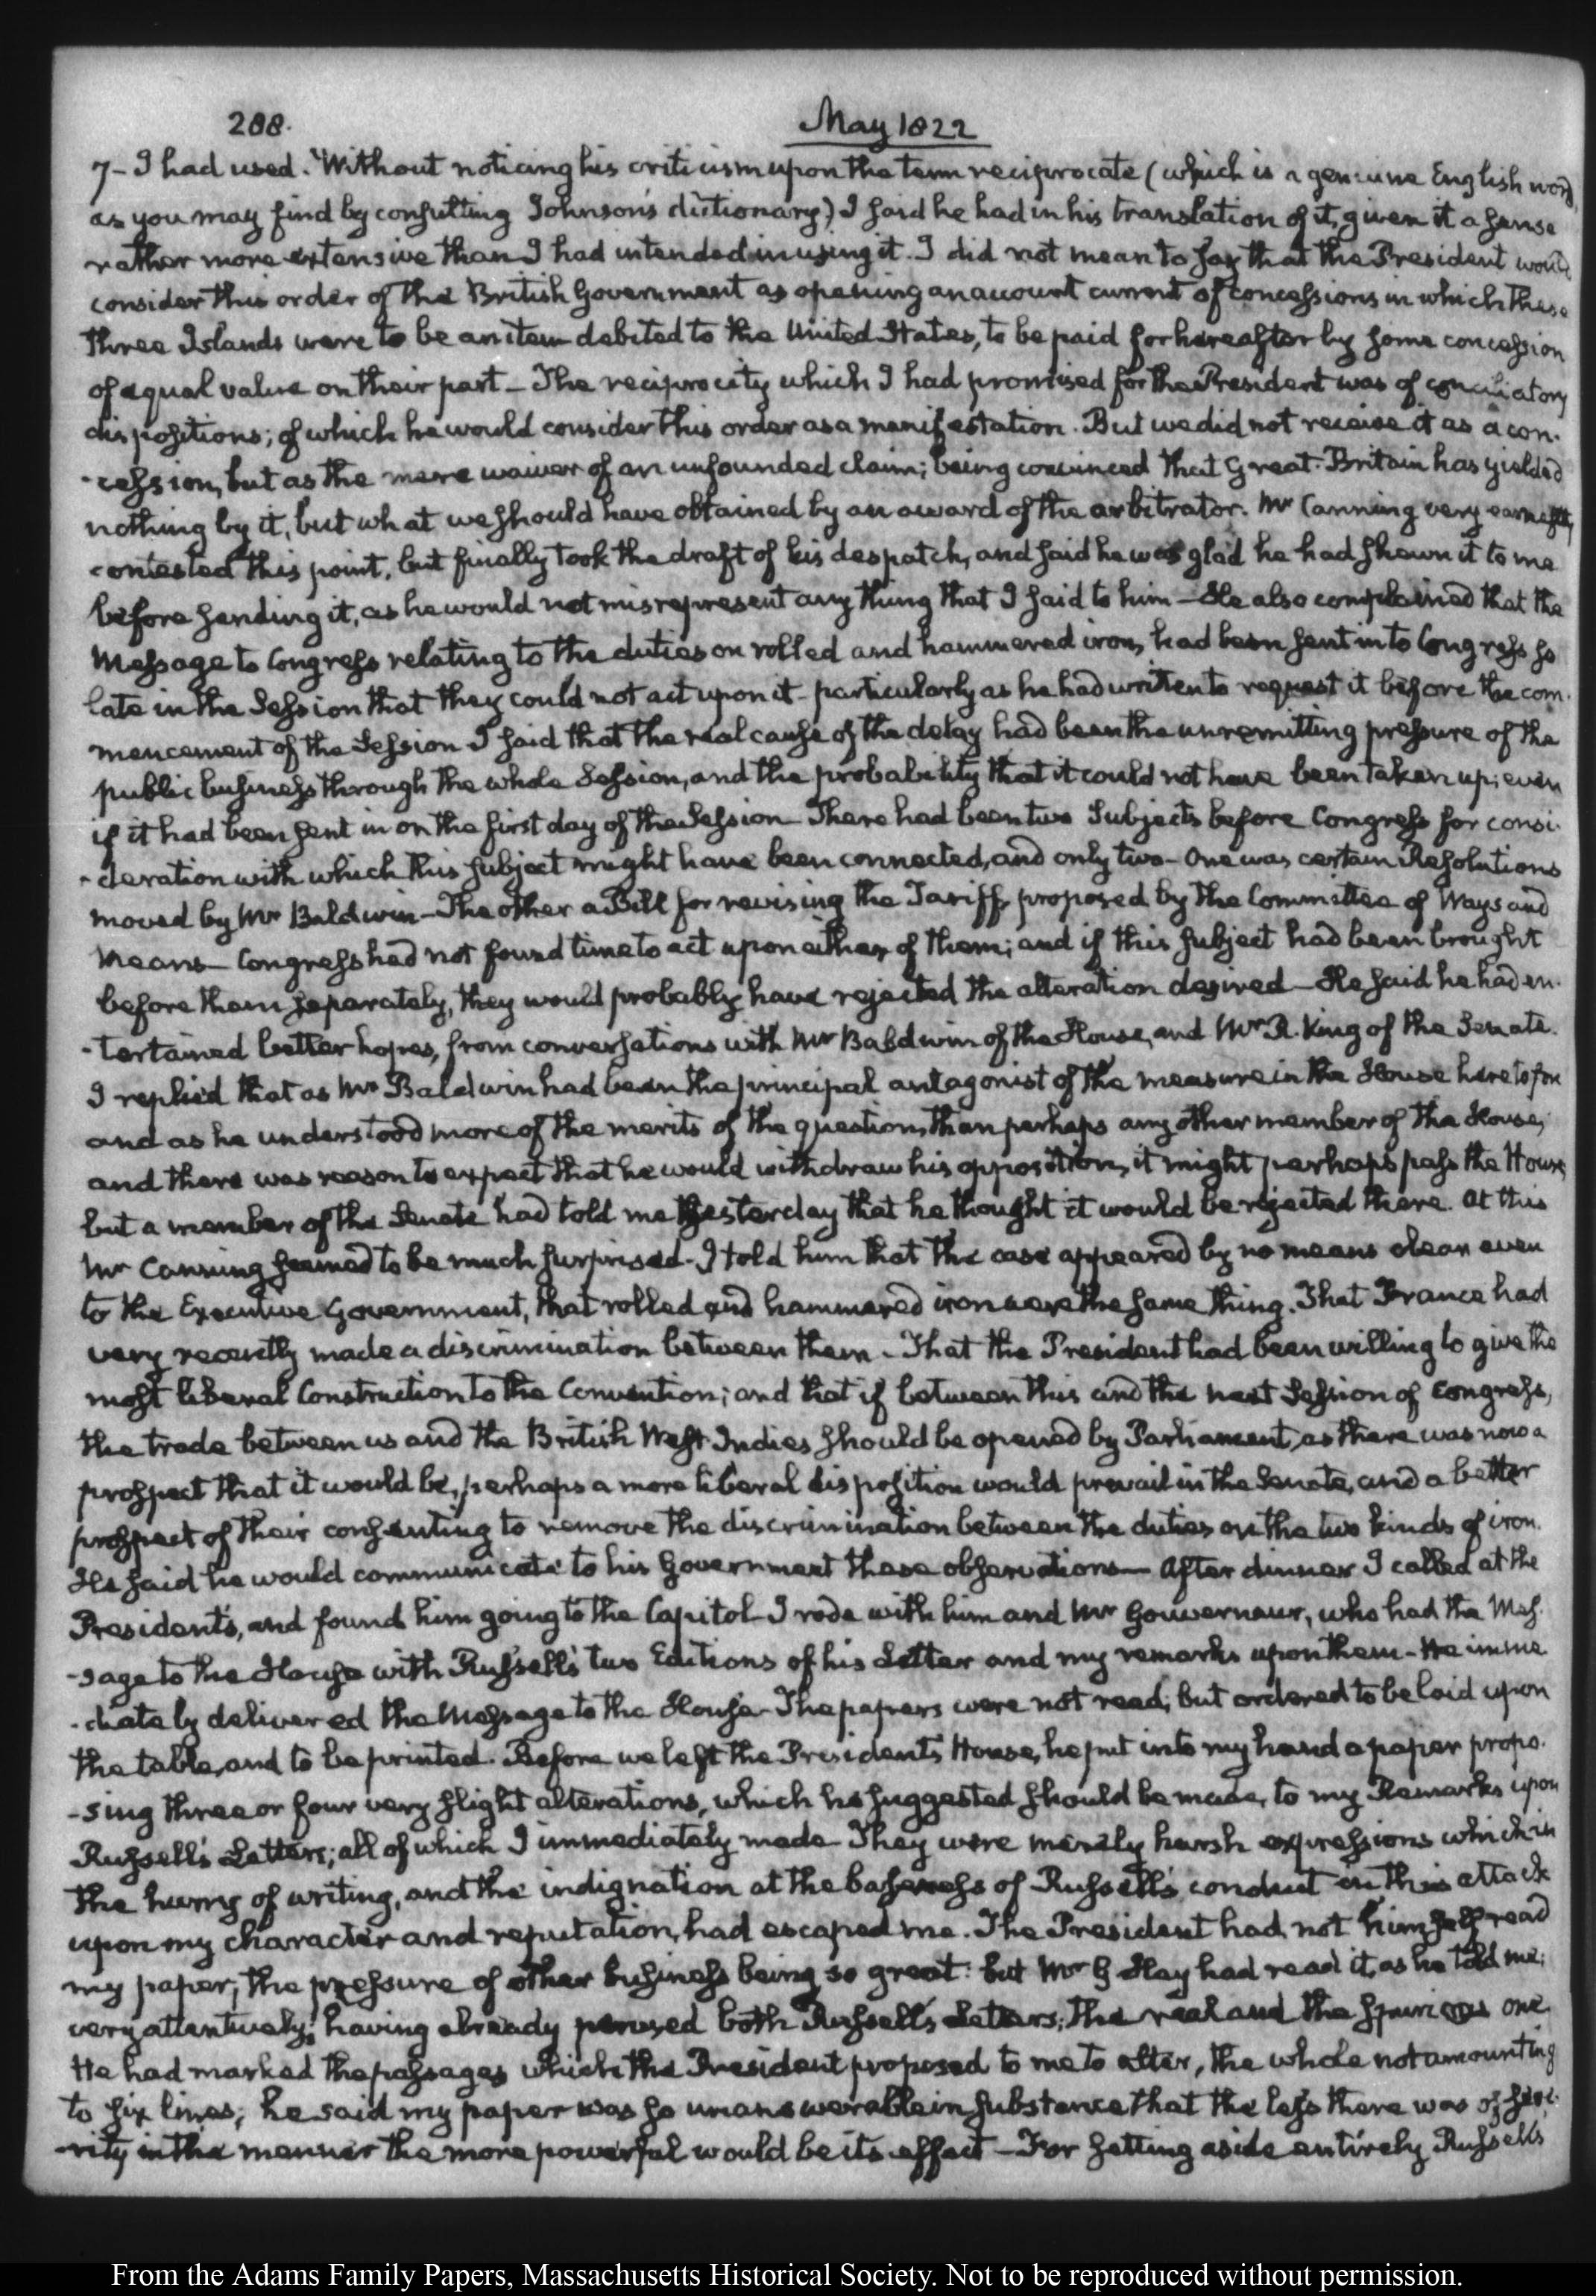 288.
May 1822
7– I had used. Without noticing his criticism upon the term reciprocate (which is a genuine English word,
as you may find by consulting Johnson's dictionary) I said he had in his translation of it, given it a sense
rather more extensive than I had intended in using it. I did not mean to say that the President would
consider this order of the British Government as opening an account current of concessions in which these
three Islands were to be an item debited to the United States, to be paid for hereafter by some concession
of equal value on their part – The reciprocity which I had promised for the President was of conciliatory
dispositions; of which he would consider this order as a manifestation. But we did not receive it as a con-
-cession, but as the mere waiver of an unfounded claim; being convinced that Great-Britain has yielded
nothing by it, but what we should have obtained by an award of the arbitrator. Mr Canning very earnestly
contested this point, but finally took the draft of his despatch, and said he was glad he had shewn it to me
before sending it, as he would not misrepresent any thing that I said to him – He also complained that the
Message to Congress relating to the duties on rolled and hammered iron, had been sent in to Congress so
late in the Session that they could not act upon it – particularly as he had written to request it before the com-
mencement of the Session I said that the real cause of the delay had been the unremitting pressure of the
public business through the whole Session, and the probability that it could not have been taken up, even
if it had been sent in on the first day of the Session – There had been two Subjects before Congress for consi-
-deration with which this subject might have been connected, and only two – One was certain Resolutions
moved by Mr Baldwin – The other a Bill for revising the Tariff, proposed by the Committee of Ways and
Means – Congress had not found time to act upon either of them; and if this subject had been brought
before them separately, they would probably have rejected the alteration desired – He said he had en-
-tertained better hopes, from conversations with Mr Baldwin of the House, and Mr R. King of the Senate.
I replied that as Mr Baldwin had been the principal antagonist of the measure in the House heretofore
and as he understood more of the merits of the question, than perhaps any other member of the House,
and there was reason to expect that he would withdraw his opposition, it might perhaps pass the House
but a member of the Senate had told me yesterday that he thought it would be rejected there. At this
Mr Canning seemed to be much surprised – I told him that the case appeared by no means clear even
to the Executive Government, that rolled and hammered iron were the same thing. That France had
very recently made a discrimination between them – That the President had been willing to give the
most liberal Construction to the Convention; and that if between this and the next Session of Congress,
the trade between us and the British West-Indies should be opened by Parliament, as there was now a
prospect that it would be, perhaps a more liberal disposition would prevail in the Senate, and a better
prospect of their consenting to remove the discrimination between the duties on the two kinds of iron.
He said he would communicate to his Government these observations – After dinner I called at the
President's, and found him going to the Capitol – I rode with him and Mr Gouverneur, who had the Mes-
-sage to the House with Russell's two Editions of his Letter and my remarks upon them – He imme
-diately delivered the Message to the House – The papers were not read; but ordered to be laid upon
the table, and to be printed. Before we left the President's House, he put into my hand a paper propo-
-sing three or four very slight alterations, which he suggested should be made, to my Remarks upon
Russell's Letters; all of which I immediately made – They were merely harsh expressions which in
the hurry of writing, and the indignation at the baseness of Russell's conduct in this attack
upon my character and reputation, had escaped me. The President had not himself read
my paper, the pressure of other business being so great: but Mr G Hay had read it, as he told me;
very attentively; having already perused both Russell's Letters; the real and the spurious one.
He had marked the passages which the President proposed to me to alter, the whole not amounting
to six lines; he said my paper was so unanswerable in substance that the less there was of seve-
-rity in the manner the more powerful would be its effect – For setting aside entirely Russell's
From the Adams Family Papers, Massachusetts Historical Society. Not to be reproduced without permission.